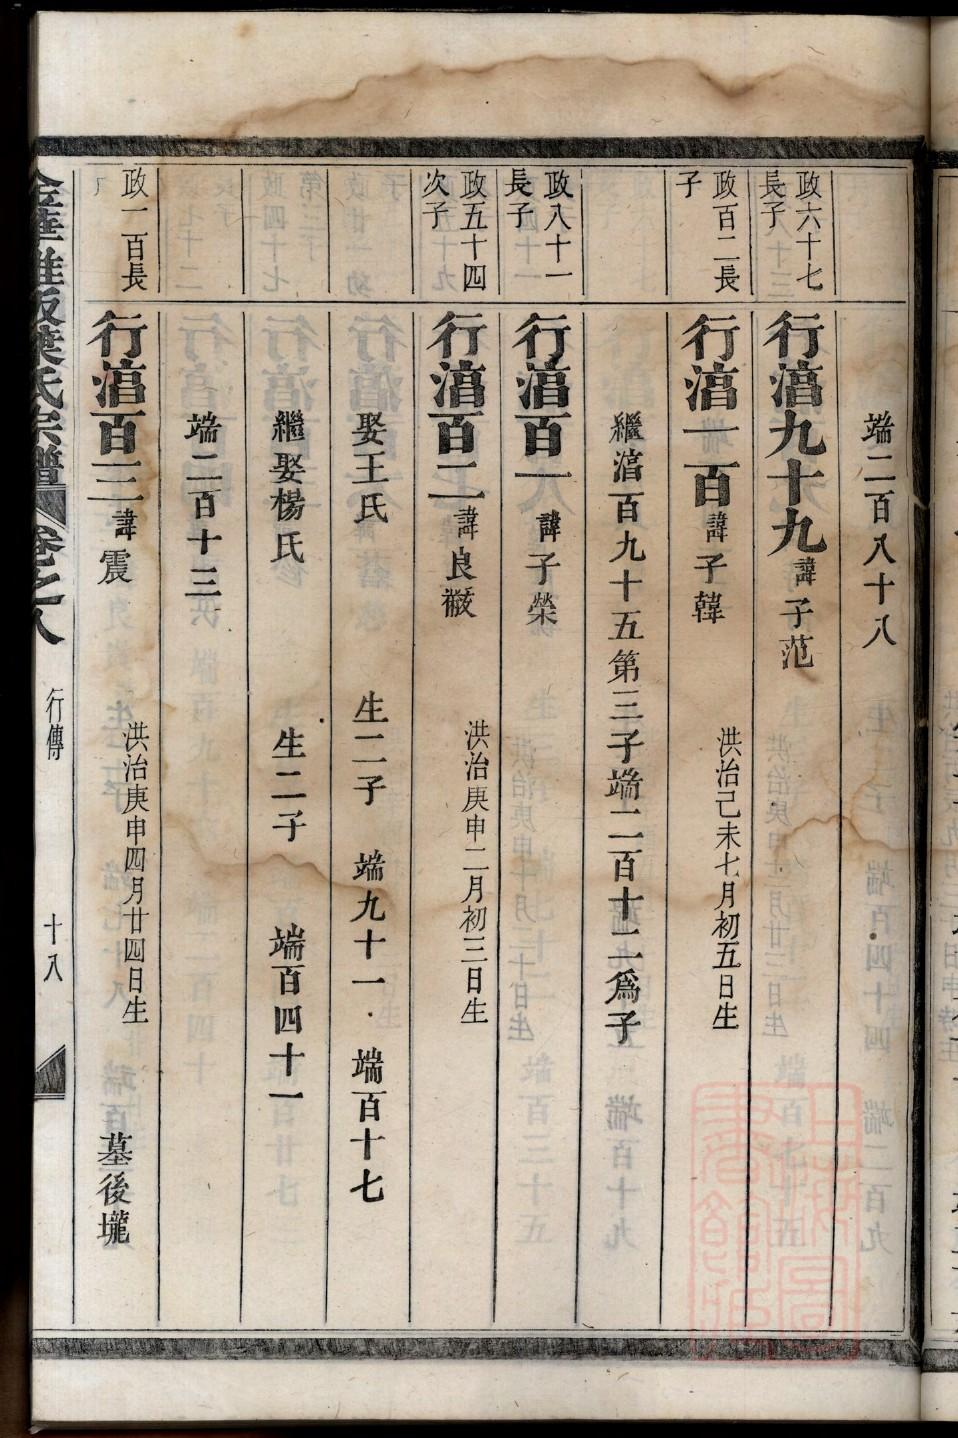 端二百八十八
政六十七
長子
行湻九十九諱子范
政百二長
子
行湻一百諱子韓
洪治己未七月初五日生
繼湻百九十五第三子端二百十二爲子
政八十一
長子
行湻百一諱子榮
政五十四
次子
行湻百二諱良
洪治庚申二月初三日生
娶王氏 生二子 端九十一 端百十七
繼娶楊氏 生二子 端百四十一
端二百十三
政一百長
行湻百三諱震
洪治庚申四月廿四日生
墓後壠
金華
葉氏宗譜 卷之八 行傳 十八